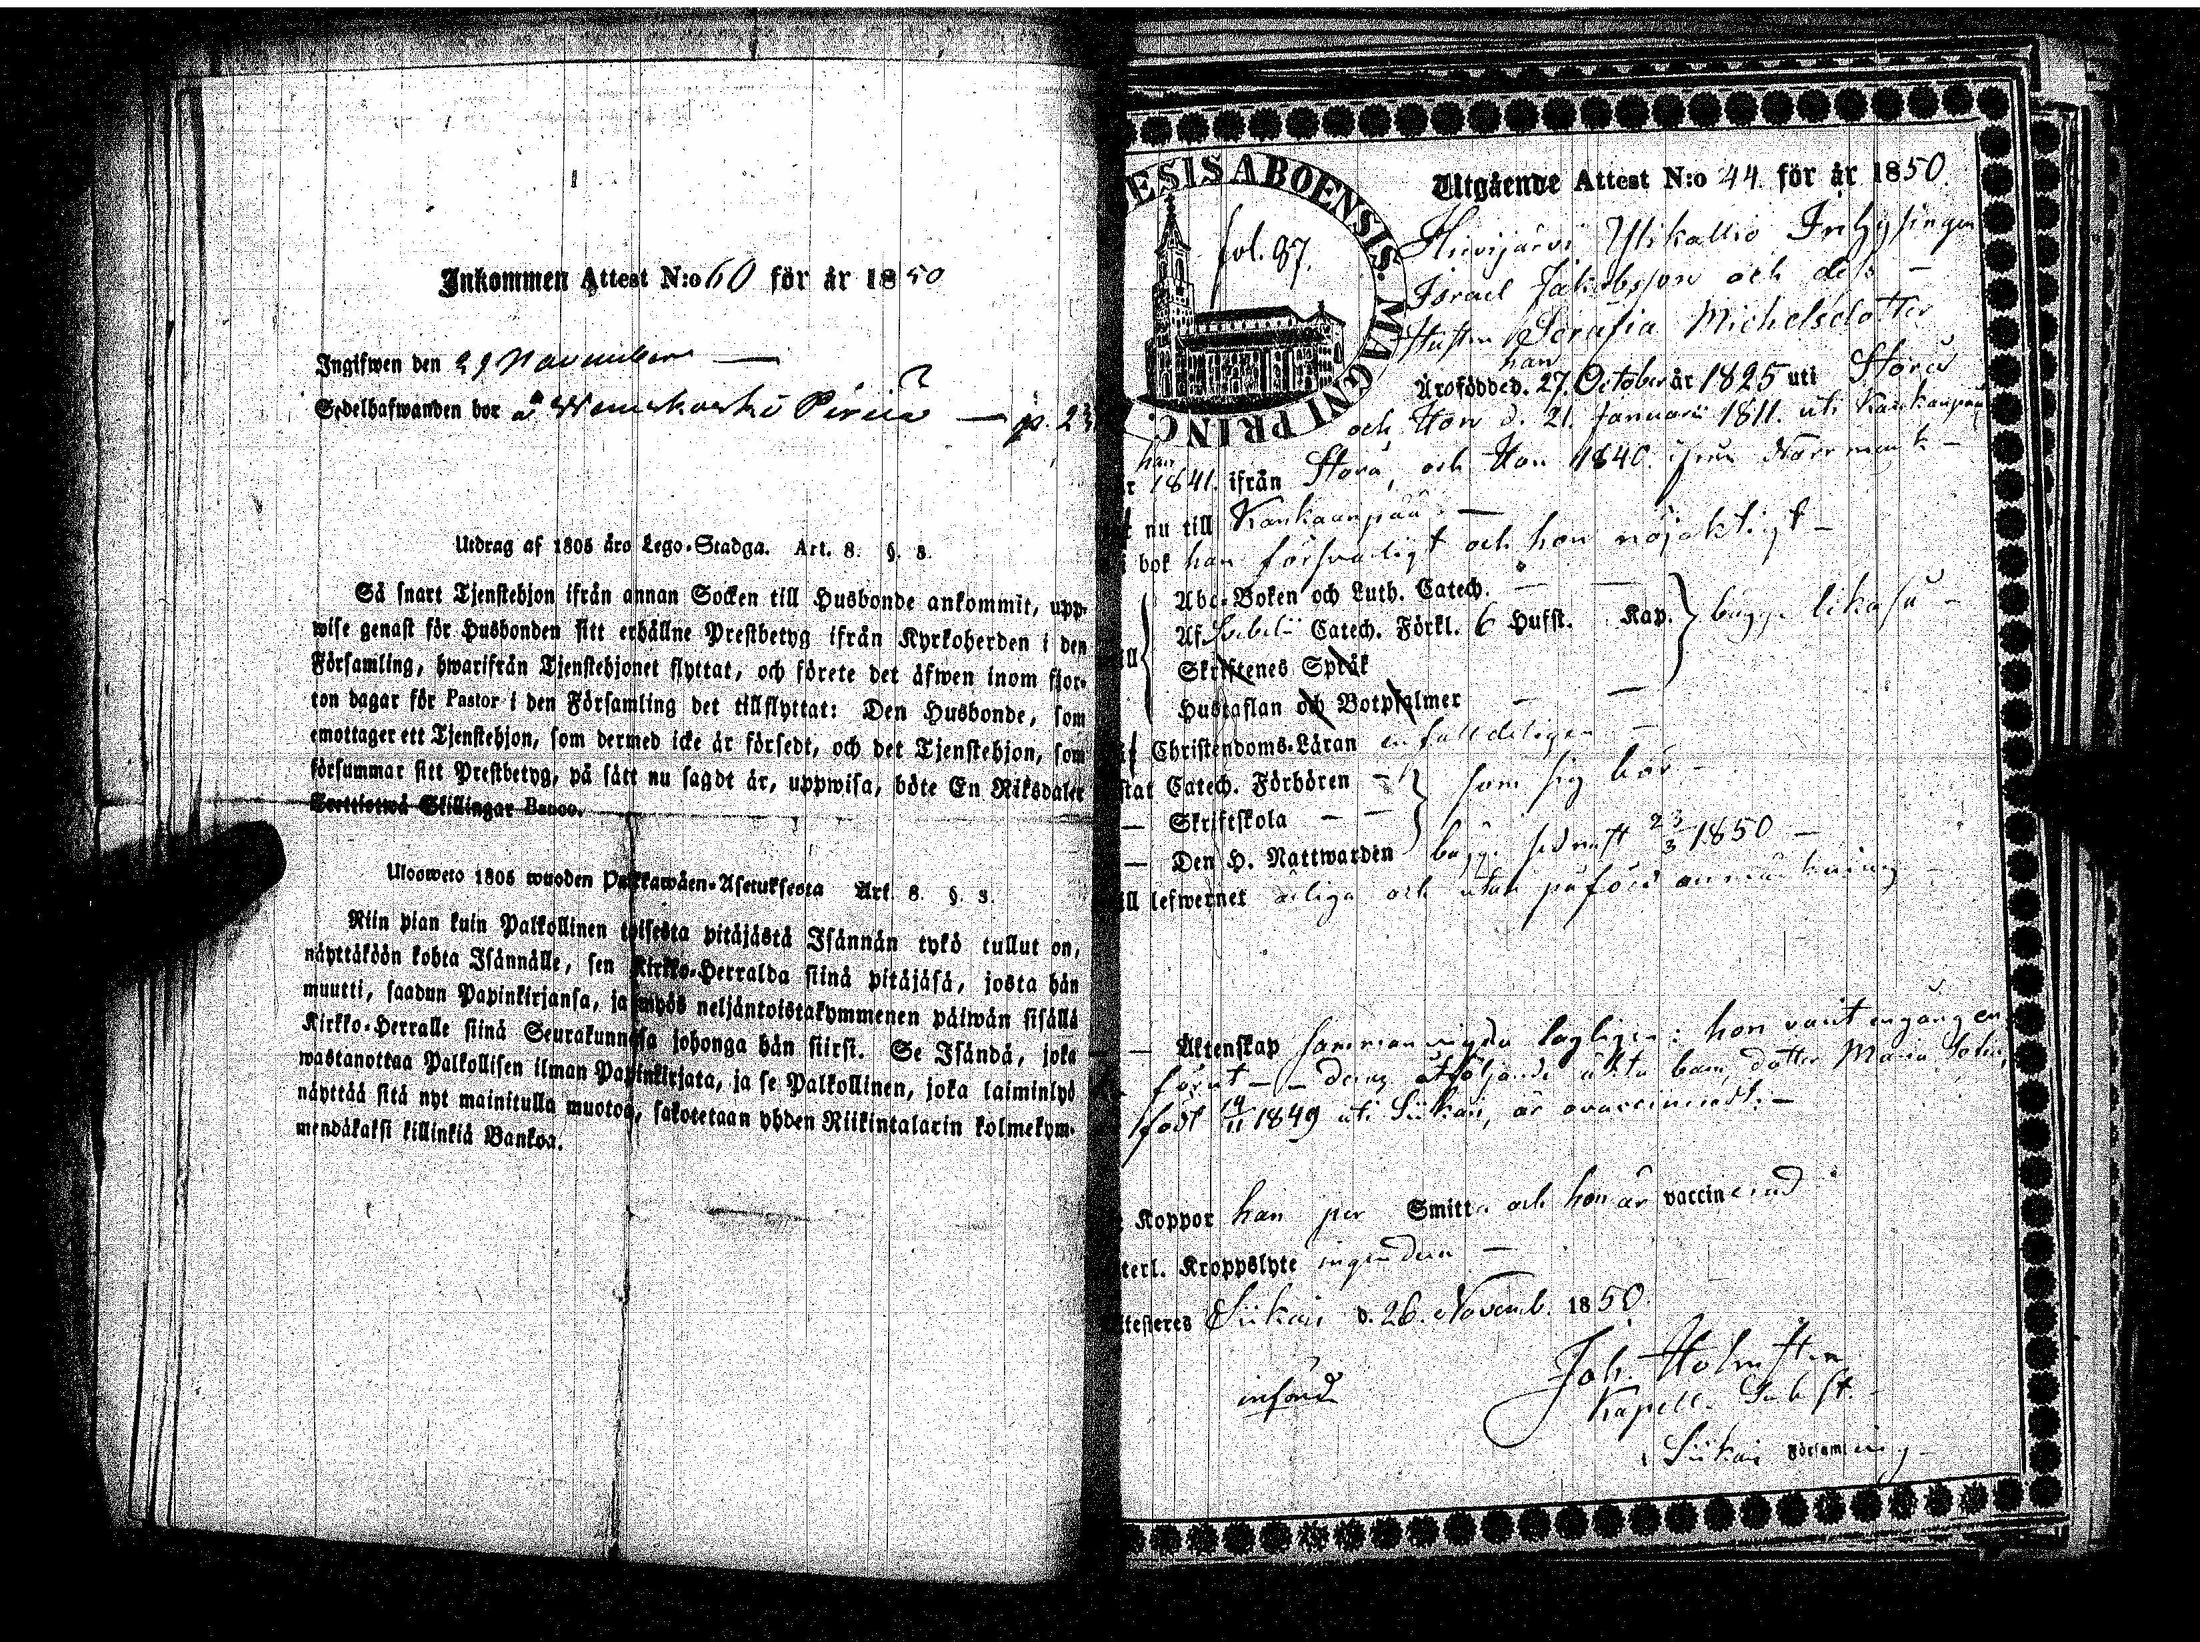 Inkommen Attest N:o 60 för år 1850
Ingifwen den 29 November —
Sedelhafwanden bor å — p. 23
Utdrag af 1805 års Lego-Stadga. Art. 8. §. 3.
Så snart Tjenstehjon ifrån annan Socken till Husbonde ankommit, upp-
wise genast för Husbonden sitt erhållne Prestbetyg ifrån Kyrkoherden i den
Församling, hwarifrån Tjenstehjonet flyttat, och förete det äfwen inom fjor-
ton dagar för Pastor i den Församling det tillflyttat: Den Husbonde, som
emottager ett Tjenstehjon, som dermed icke är försedt, och det Tjenstehjon, som
försummar sitt Prestbetyg, på sått nu sagdt är, uppwisa, böte En Riksdaler
Trettiotwå Skillingar Banco.
Ulosweto 1805 wuoden Palkkawäen-Asetuksesta Art. 8. §. 3.
Niin pian kuin Palkollinen toisesta pitäjästä Isännän tykö tullut on,
näyttäköön kohta Isännälle, sen Kirkko-Herralda siinä pitäjäsä, josta hän
muutti, saadun Papinkirjansa, ja myös neljäntoistakymmenen päiwän sisällä
Kirkko-Herralle siinä Seurakunnasa johonga hän siirsi. Se Isändä, joka
wastanottaa Palkollisen ilman Papinkirjata, ja se Palkollinen, joka laiminlyö
näyttää sitä nyt mainitulla muotoa, sakotetaan yhden Riikintalarin kolmekym-
mendäkaksi killinkiä Bankoa.
ESIS ABOENSIS. MAGNI PRINC.
fol. 97.
Utgående Attest N:o 44 för år 1850.
Hirvijärvi Ylikallio Inhysingen
Israel Jakobsson och dess
Hustru Serafia Michelsdotter
han
Äro födde d. 27. October år 1825 uti Storå
och Hon d. 21. Januarii 1811. uti Kankaanpää
han
r 1841. ifrån Storå, och Hon 1840. ifrån Norrmark —
nu till Kankaanpää —
i bok han försvarligt och hon nöjaktigt —
Abc-Boken och Luth. Catech. —
Af Svebelii Catech. Förkl. 6 Hufst. Kap. } begge likaså —
ill
Skriftenes Språk
Hustaflan och Botpsalmer —
af Christendoms-Läran enfaldeligen —
stat Catech. Förhören — } som sig bör —
— Skriftskola — —
— Den H. Nattwarden begge sednast 23/3 1850 —
ill lefwernet ärliga och utan påförd anmärkning —
— Äktenskap sammanvigda lagligen; hon varit engång en
förut — — deras åtföljande äkta barn, dotter Maria
född 14/11 1849 uti Siikais, är ovaccinerad. —
Koppor han per Smitta och hon är vaccinerad
terl. Kroppslyte ingendera —
ttesteres Siikais d. 26. Novemb. 1850.
införd
Joh. Holmsten
Kapell. Subst.
i Siikais Församling —